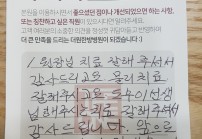 본원을 이용하시면서 좋으셨던 점이나 개선되었으면 하는 사항,
또는 칭찬하고 싶은 직원이 있으시다면 알려주세요.
고객 여러분의 소중한 의견을 귀담아듣고 반영하여
더 큰 만족을 드리는 더원한방병원이 되겠습니다 :)
원장님 치료 잘해 주셔서
감사드리고요 물리치료
잘해주시고 도수이선생
님 해주시는 치료 잘해 주셔서
감사드립니다. 앞으로